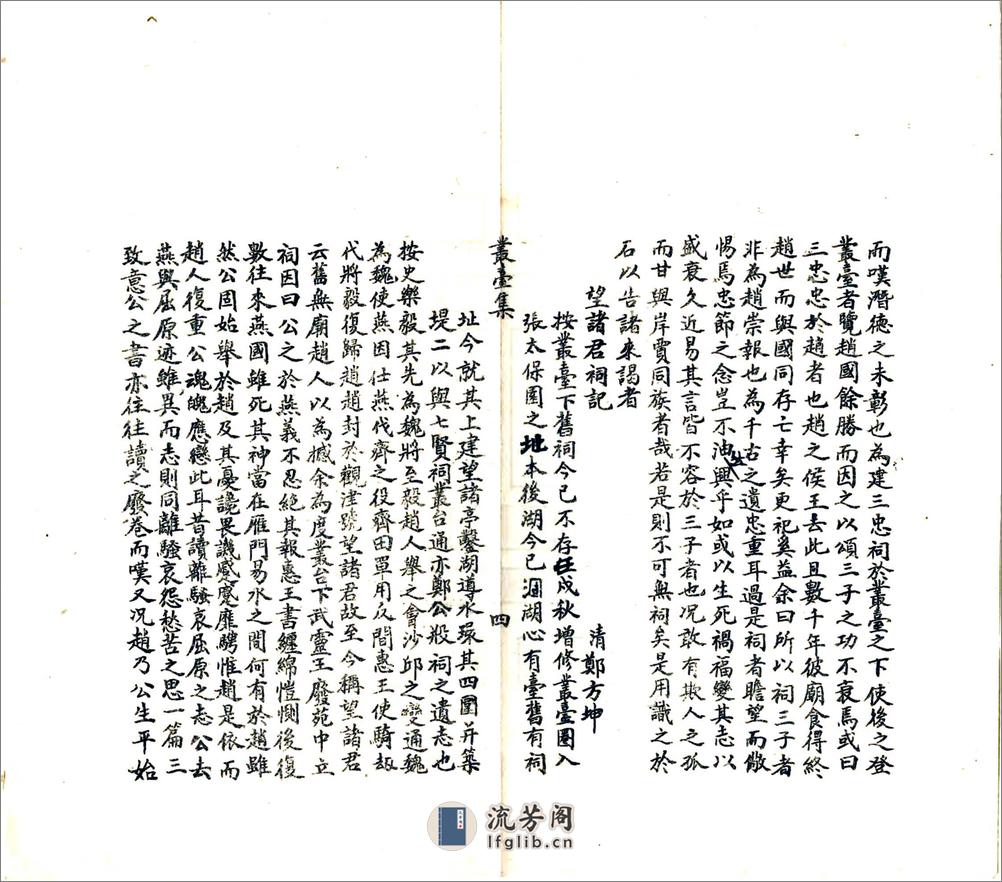 而嘆潛德之未彰也為建三忠祠於叢臺之下使後之登
叢臺者覽趙國餘勝而因之以頌三子之功不衰焉或曰
三忠忠於趙者也趙之侯王去此且數千年彼廟食得終
趙世而與國同存亡幸矣更祀奚益余曰所以祠三子者
非為趙崇報也為千古之遺忠重耳過是祠者瞻望而敬
惕焉忠節之念豈不油然興乎如或以生死禍福變其志以
盛衰久近易其言皆不容於三子者也況敢有欺人之孤
而甘與岸賈同族者哉若是則不可無祠矣是用識之於
石以告諸來謁者
望諸君祠記
清鄭方坤
按叢臺下舊祠今已不存壬戌秋增修叢臺圈入
張太保園之地本後湖今已涸湖心有臺舊有祠
叢臺集
四
址今就其上建望諸亭鑿湖導水環其四圍并築
堤二以與七賢祠叢台通亦鄭公設祠之遺志也
按史樂毅其先為魏將至毅趙人舉之會沙邱之變通魏
為魏使燕因仕燕伐齊之役齊田單用反間惠王使騎劫
代將毅復歸趙趙封於觀津號望諸君故至今稱望諸君
云舊無廟趙人以為撼余為度叢台下武靈王廢苑中立
祠因曰公之於燕義不忍絕其報惠王書纏綿愷惻後復
數往來燕國雖死其神當在雁門易水之間何有於趙雖
然公固始舉於趙及其憂讒畏譏蹙蹙靡騁惟趙是依而
趙人復重公魂魄應戀此耳昔讀離騷哀屈原之志公去
燕與屈原迹雖異而志則同離騷哀怨愁苦之思一篇三
致意公之書亦往往讀之廢卷而嘆又況趙乃公生平始
流芳阁
lfglib.cn